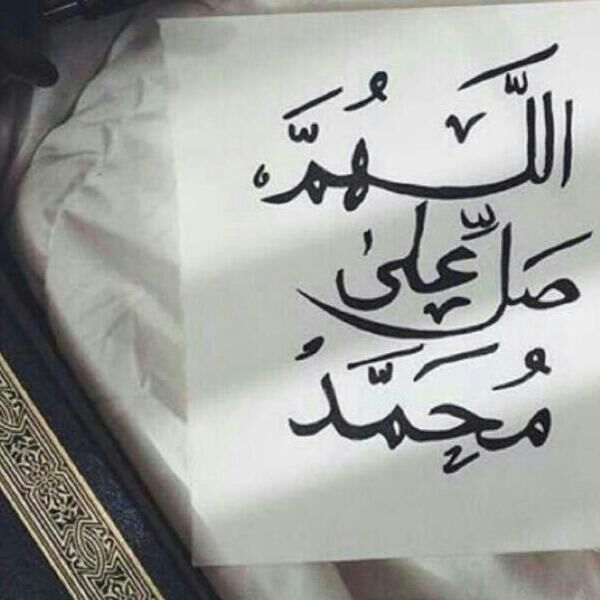 اللَّهُمَّ
صَلِّ عَلىٰ
مُحَمَّد